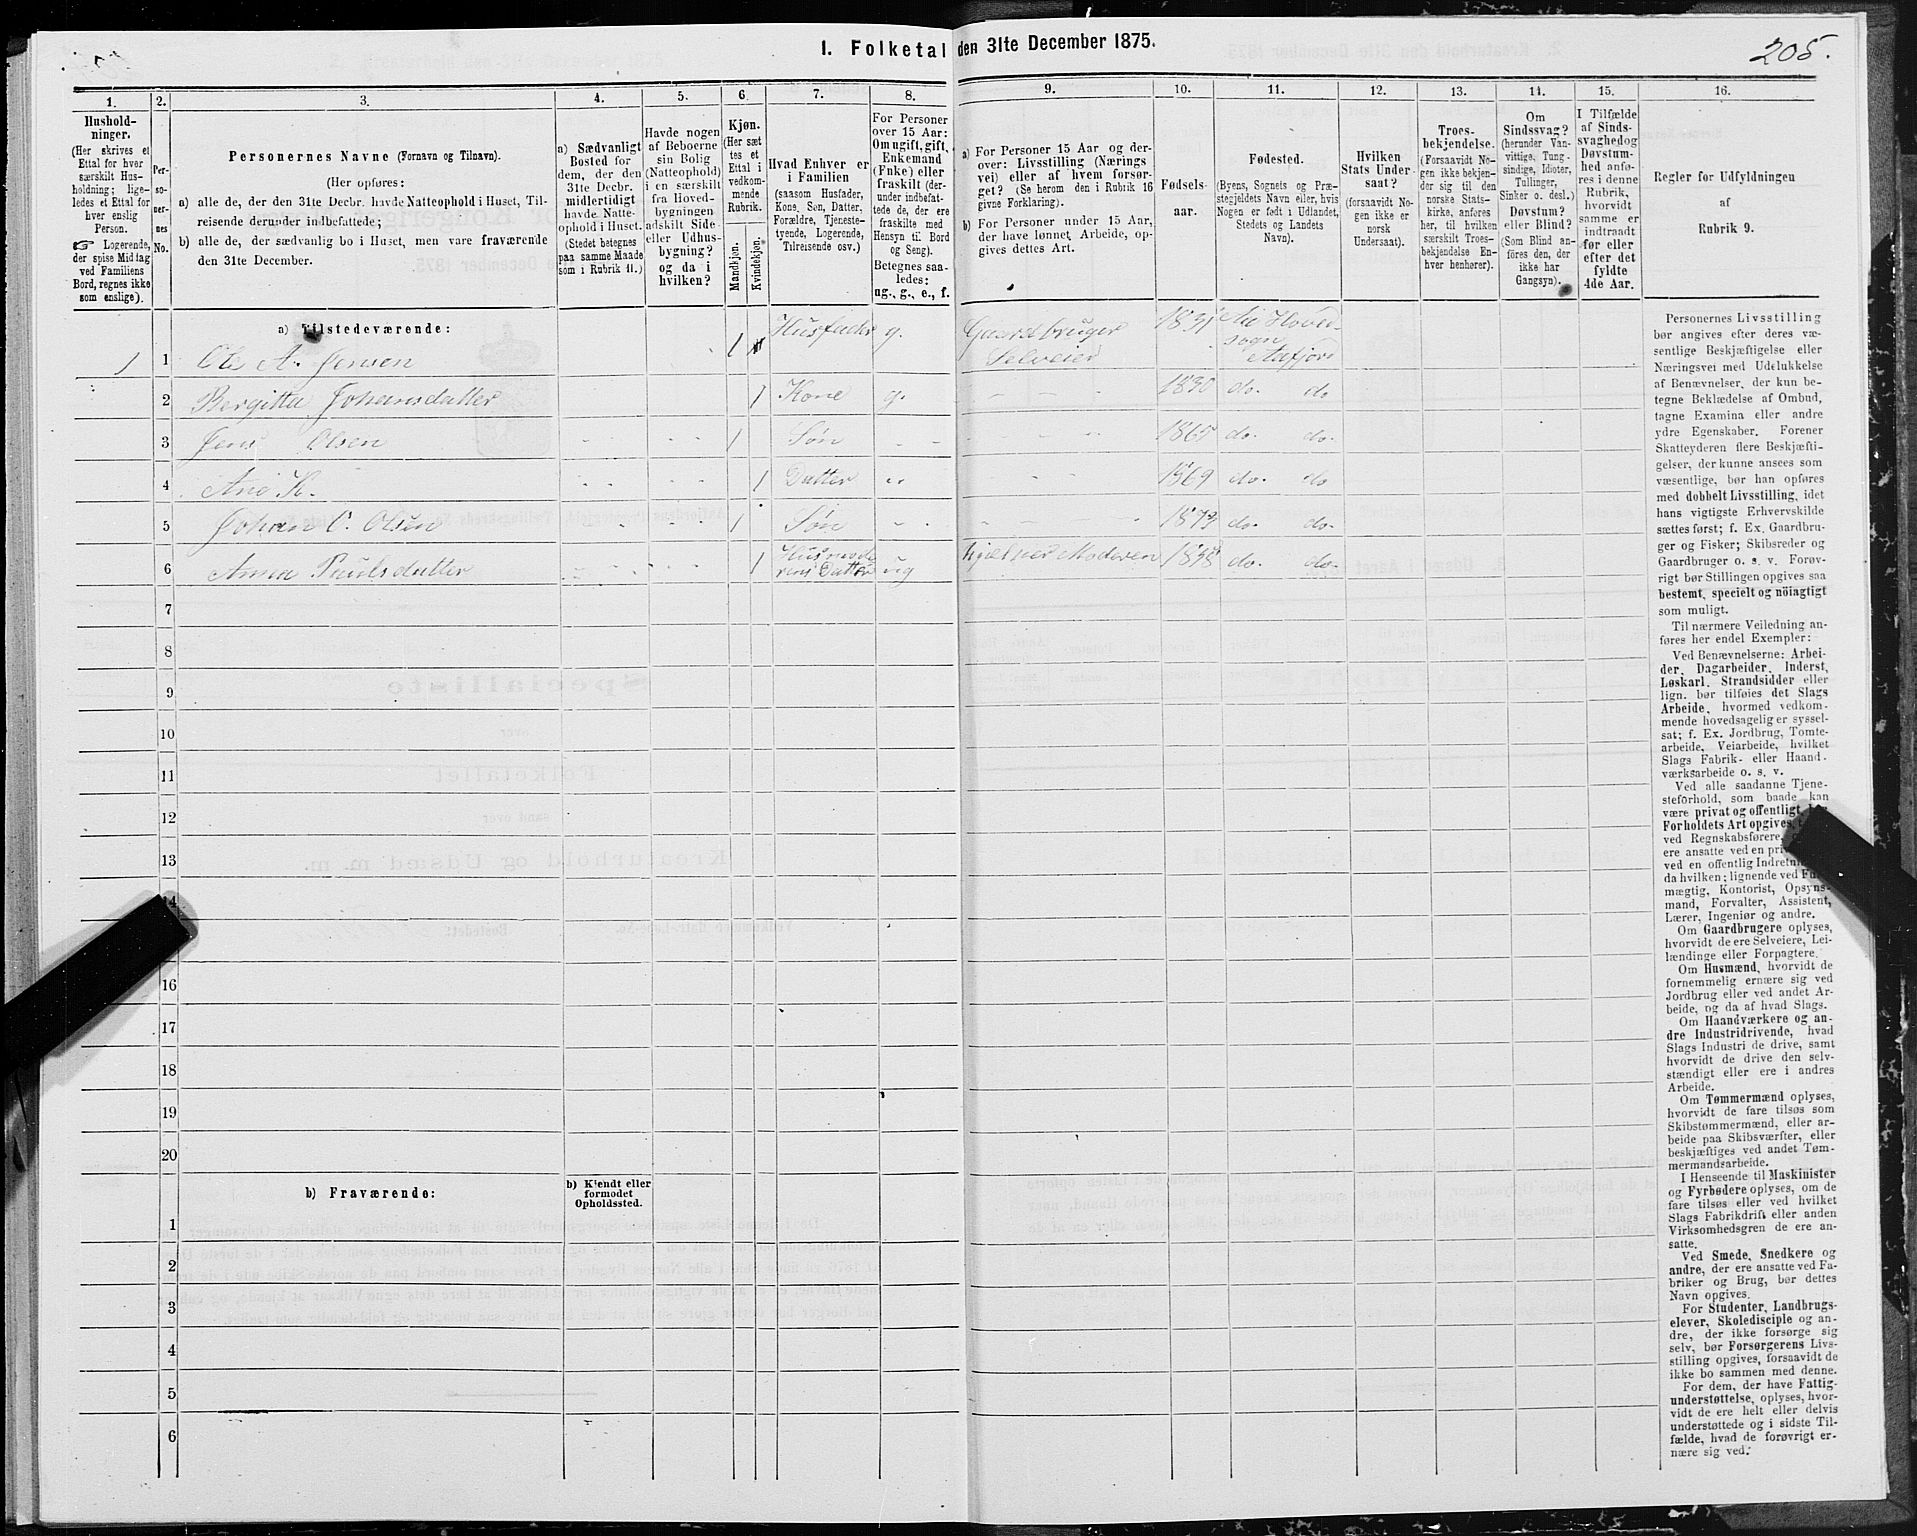 I. Folketal den 31te December 1875.
205.
1.
2.
3.
4.
5.
6
7.
8.
9.
10.
11.
12.
13.
14.
15.
16.
Hushold-
ninger.
(Her skrives et
Ettal for hver
særskilt Hus-
holdning; lige-
ledes et Ettal for
hver enslig
Person.
☞ Logerende,
der spise Middag
ved Familiens
Bord, regnes ikke
som enslige).
Per-
so-
ner-
nes
No.
Personernes Navne (Fornavn og Tilnavn).
(Her opføres:
a) alle de, der den 31te Decbr. havde Natteophold i Huset, Til-
reisende derunder indbefattede;
b) alle de, der sædvanlig bo i Huset, men vare fraværende
den 31te December.
a) Sædvanligt
Bosted for
dem, der den
31te Decbr.
midlertidigt
havde Natte-
ophold i Huset.
(Stedet betegnes
paa samme Maade
som i Rubrik 11.)
Havde nogen
af Beboerne
sin Bolig
(Natteophold)
i en særskilt
fra Hoved-
bygningen
adskilt Side-
eller Udhus-
bygning?
og da i
hvilken?
Kjøn.
(Her sæt-
tes et
Ettal i
vedkom-
mende
Rubrik.
Mandkjøn.
Kvindekjøn.
Hvad Enhver er
i Familien
(saasom Husfader,
Kone, Søn, Datter,
Forældre, Tjeneste-
tyende, Logerende,
Tilreisende osv.)
For Personer
over 15 Aar:
Om ugift, gift,
Enkemand
(Enke) eller
fraskilt (der-
under indbefat-
tede de, der ere
fraskilte med
Hensyn til Bord
og Seng).
Betegnes saa-
ledes:
ug., g., e., f.
a) For Personer 15 Aar og der-
over: Livsstilling (Nærings-
vei) eller af hvem forsør-
get? (Se herom den i Rubrik 16
givne Forklaring).
b) For Personer under 15 Aar,
der have lønnet Arbeide, op-
gives dettes Art.
Fødsels-
aar.
Fødested.
(Byens, Sognets og Præ-
stegjeldets Navn eller, hvis
Nogen er født i Udlandet,
Stedets og Landets
Navn).
Hvilken
Stats Under-
saat?
(forsaavidt No-
gen ikke er
norsk
Undersaat).
Troes-
bekjendelse.
(Forsaavidt No-
gen ikke bekjen-
der sig til den
norske Stats-
kirke, anføres
her, til hvilken
særskilt Troes-
bekjendelse En-
hver henhører).
Om
Sindssvag?
(herunder Van-
vittige, Tung-
sindige, Idioter,
Tullinger,
Sinker o. desl.)
Døvstum?
eller Blind?
(Som Blind an-
føres den, der
ikke har
Gangsyn).
I Tilfælde
af Sinds-
svaghed og
Døvstum-
hed anfø-
res i denne
Rubrik,
hvorvidt
samme er
indtraadt
før eller
efter det
fyldte
4de Aar.
Regler for Udfyldningen
af
Rubrik 9.
a) Tilstedeværende:
1 1 Ole A. Jensen 1 Husfader g. Gaardbruger Selveier 1831 Hoved-
sogn
Aafjord
2 Bergitta Johansdatter 1 Kone g. - - 1830 do. do
3 Jens Olsen - - - - 1 Søn - - - - - 1865 do. do.
4 Ane K. - - - - 1 Datter - - - 1869 do. do
5 Johan O. Olsen - - - - 1 Søn - - - - - 1873 do. do.
6 Anna Paulsdatter - - - - 1 Husmode
rens Datter ug Moderen do. do.
7
8
9
10
11
12
13
14
16
17
18
19
20
b) Fraværende:
b) Kjendt eller
formodet
Opholdssted.
1
2
3
4
5
6
Personernes Livsstilling
bør angives efter deres væ-
sentlige Beskjæftigelse eller
Næringsvei med Udelukkelse
af Benævnelser, der kun be-
tegne Beklædelse af Ombud,
tagne Examina eller andre
ydre Egenskaber. Forener
Skatteyderen flere Beskjæfti-
gelser, der kunne ansees som
væsentlige, bør han opføres
med dobbelt Livsstilling, idet
hans vigtigste Erhvervskilde
sættes først; f. Ex. Gaardbru-
ger og Fisker; Skibsreder og
Gaardbruger o. s. v. Forøv-
rigt bør Stillingen opgives saa
bestemt, specielt og nöiagtigt
som muligt.
Til nærmere Veiledning an-
føres her endel Exempler:
Ved Benævnelserne: Arbei-
der, Dagarbeider, Inderst,
Løskarl, Strandsidder eller
lign. bør tilføies det Slags
Arbeide, hvormed vedkom-
mende hovedsagelig er syssel-
sat; f. Ex. Jordbrug, Tomte-
arbeide, Veiarbeide, hvilket
Slags Fabrik- eller Haand-
værksarbeide o. s. v.
Ved alle saadanne Tjene-
steforhold, som baade kan
være privat og offentligt,
Forholdets Art opgives,
ved Regnskabsførere,
ere ansatte ved en
ved en offentlig
da hvilken; lignende ved
mægtig, Kontorist, Opsyns-
mand, Forvalter, Assistent,
Lærer, Ingeniør og andre.
Om Gaardbrugere oplyses,
hvorvidt de ere Selveiere, Lei-
lændinge eller Forpagtere.
Om Husmænd, hvorvidt de
fornemmelig ernære sig ved
Jordbrug eller ved andet Ar-
beide, og da af hvad Slags.
Om Haandværkere og an-
dre Industridrivende, hvad
Slags Industri de drive, samt
hvorvidt de drive den selv-
stændigt eller ere i andres
Arbeide.
Om Tømmermænd oplyses,
hvorvidt de fare tilsøs som
Skibstømmermænd, eller ar-
beide paa Skibsværfter, eller
beskjæftiges ved andet Tøm-
mermandsarbeide.
I Henseende til Maskinister
og Fyrbødere oplyses, om de
fare tilsøs eller ved hvilket
Slags Fabrikdrift eller anden
Virksomhedsgren de ere an-
satte.
Ved Smede, Snedkere og
andre, der ere ansatte ved Fa-
briker og Brug, bør dettes
Navn opgives.
For Studenter, Landbrugs-
elever, Skoledisciple og an-
dre, der ikke forsørge sig
selv, bør Forsørgerens Livs-
stilling opgives, forsaavidt de
ikke bo sammen med denne.
For dem, der have Fattig-
understøttelse, oplyses, hvor-
vidt de ere helt eller delvis
understøttede og i sidste Til-
fælde, hvad de forøvrigt er-
nære sig ved.